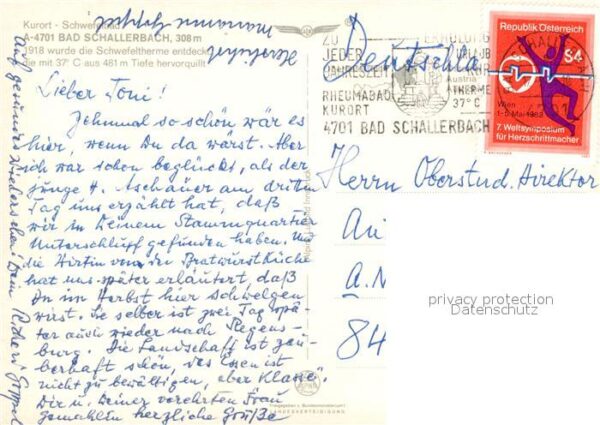 Kurort - Schwefelbad
A-4701 BAD SCHALLERBACH, 308 m
1918 wurde die Schwefeltherme entdeckt,
die mit 37° C aus 481 m Tiefe hervorquillt
Lieber Toni!
Zehnmal so schön wär es
hier, wenn Du da wärst. Aber
ich war schon beglückt, als der
junge H. Aschauer am dritten
Tag uns erzählt hat, daß
wir in Deinem Stammquartier
Unterschlupf gefunden haben. Und
die Wirtin von der Bratwurstküche
hat uns später erläutert, daß
Du im Herbst hier schwelgen
wirst. Sie selber ist zwei Tag spä-
ter auch wieder nach Regens-
burg. Die Landschaft ist zau-
berhaft schön, das Essen ist
nicht zu bewältigen, aber "Klasse".
Dir u. Deiner verehrten Frau
Gemahlin herzliche Grüße
Auf gesundes Wiedersehen! Dein
Herzlichst
ZU
JEDER
JAHRESZEIT
ERHOLUNG
URLAUB
KUR
Austria
THERME
37° C
RHEUMABAD
KURORT
4701 BAD SCHALLERBACH
4701
Republik Österreich
S4
Wien
1-5 Mai 1983
7. Weltsymposium
für Herzschrittmacher
Deutschland
Herrn Oberstud. Direktor
A.
84
LANDESVERTEIDIGUNG
privacy protection
Datenschutz